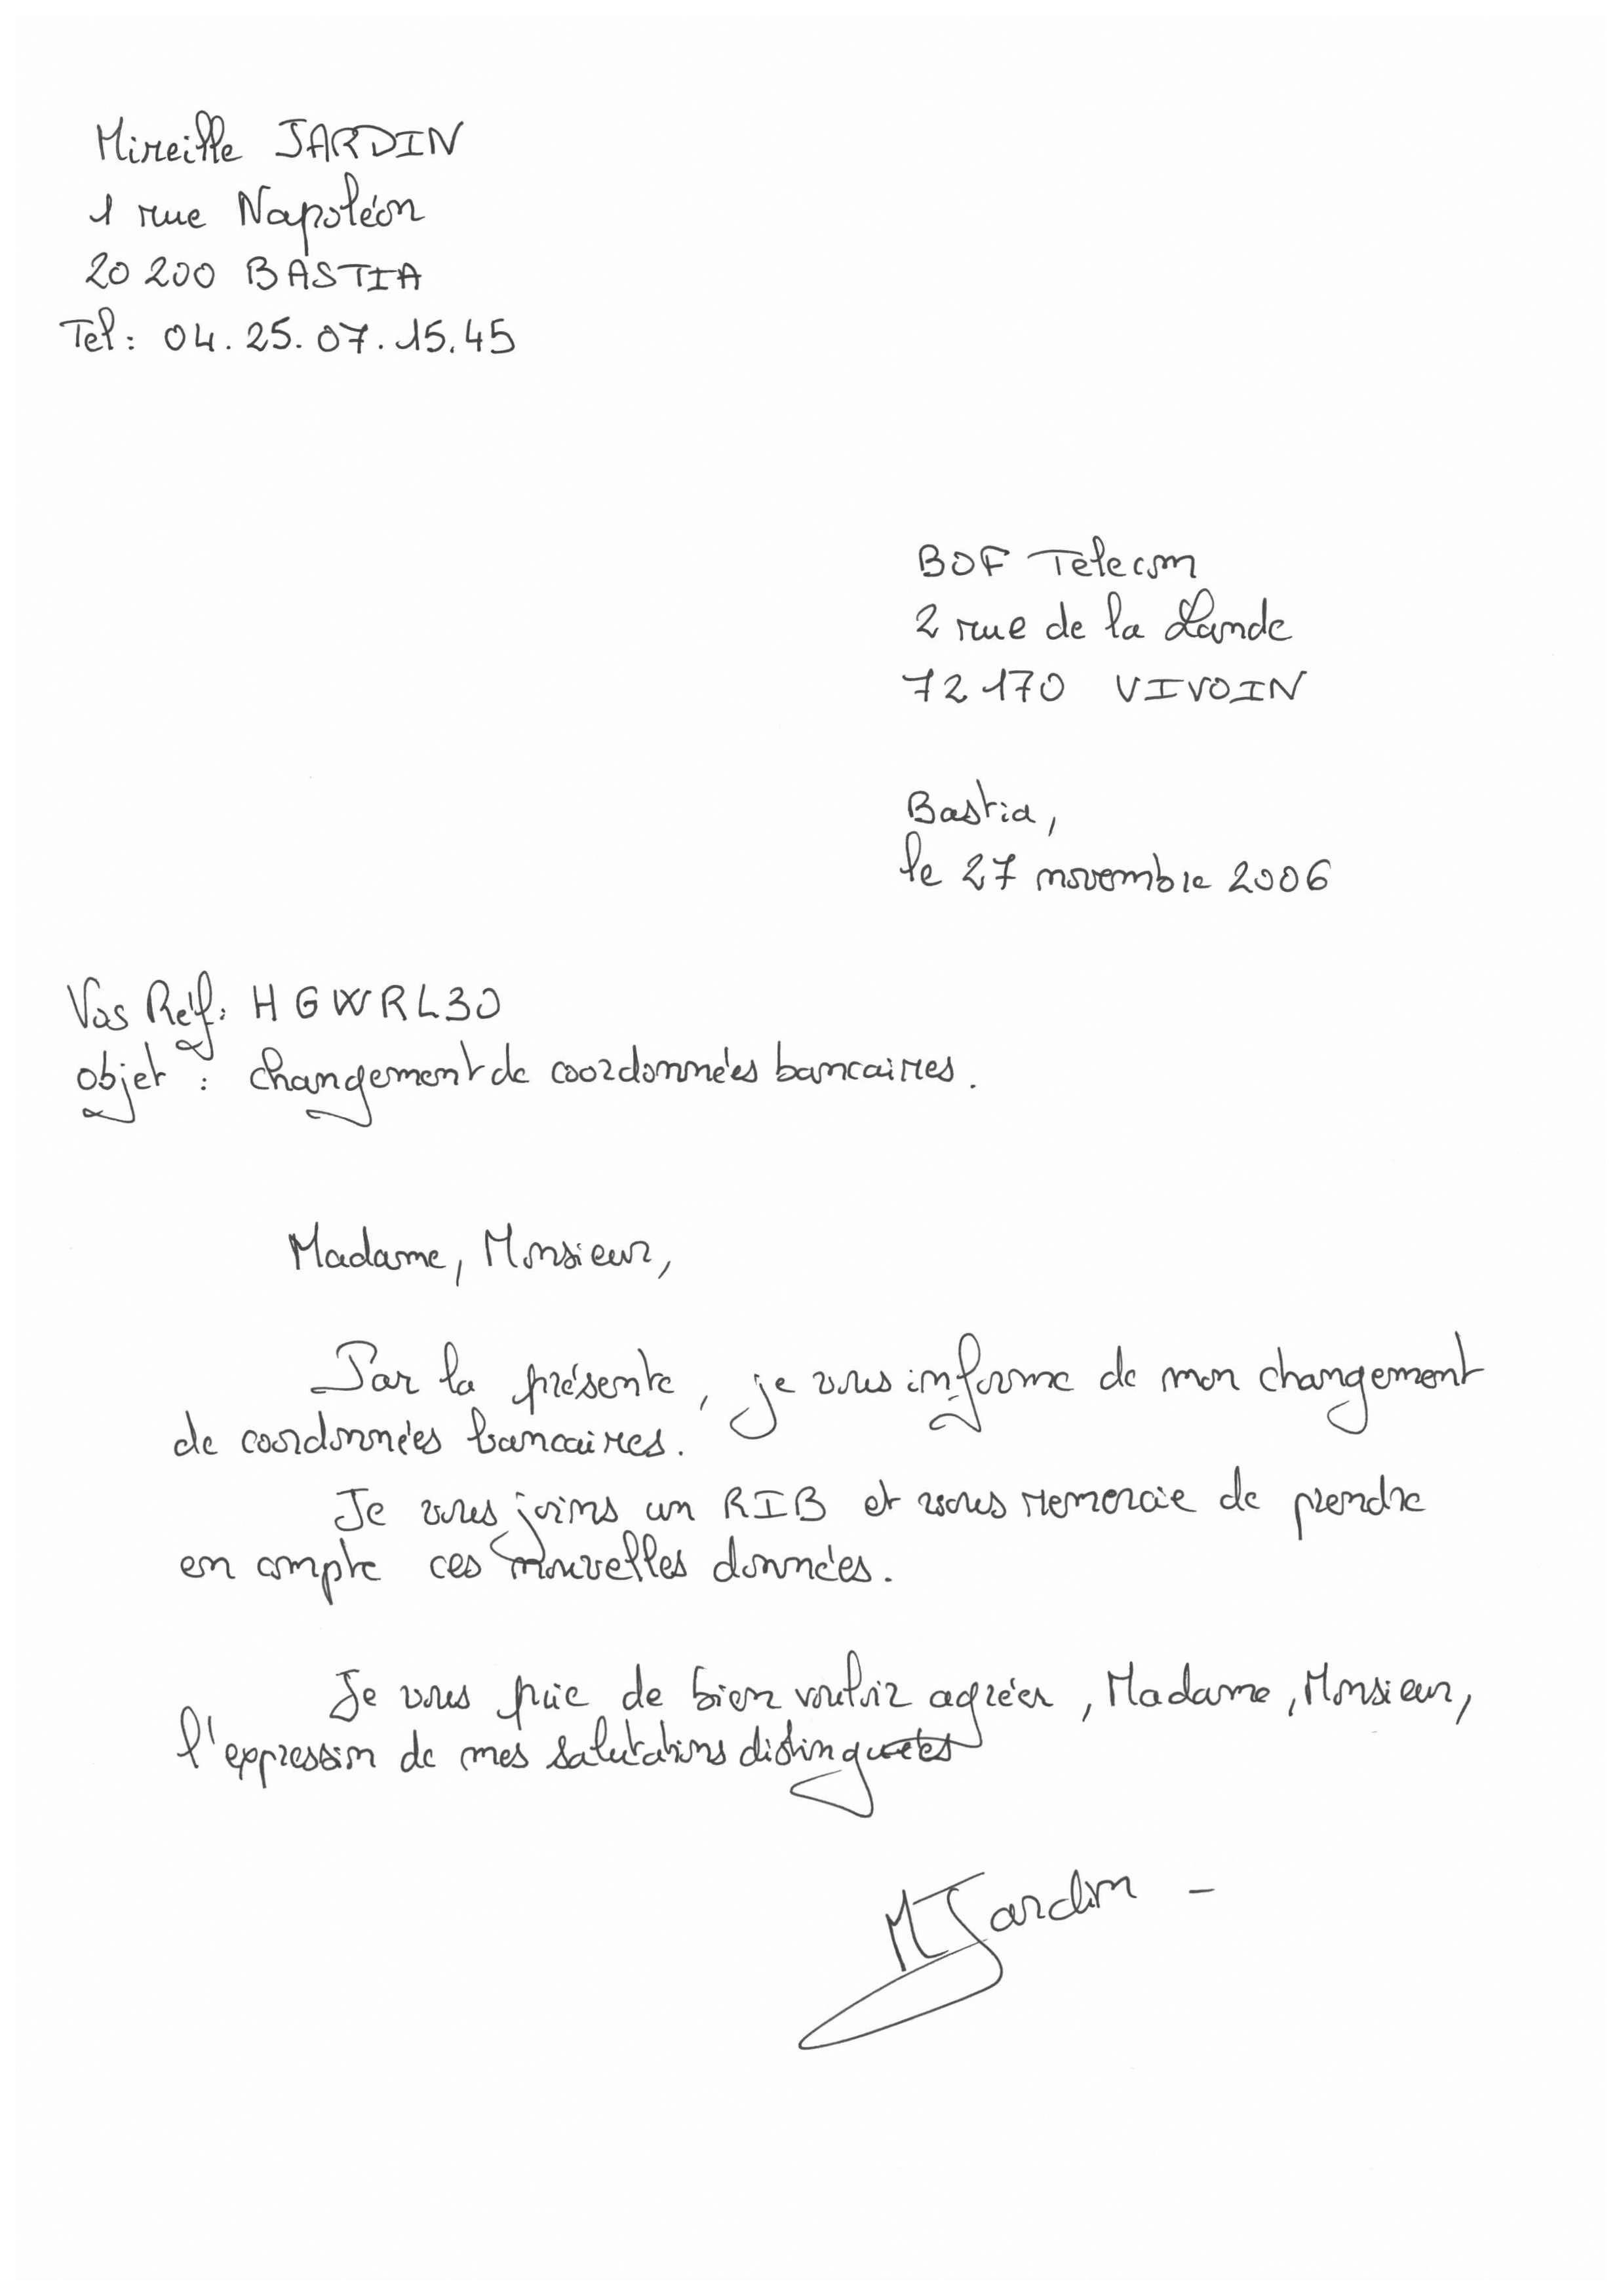 Mireille JARDIN
1 rue Napoléon
20 200 BASTIA
Tel : 04.25.07.15.45
BOF Telecom
2 rue de la Lande
72 170 VIVOIN
Bastia,
le 27 novembre 2006
Vos Réf : HGWRL30
objet : changement de coordonnées bancaires.
Madame, Monsieur,
Par la présente, je vous informe de mon changement
de coordonnées bancaires.
Je vous joins un RIB et vous remercie de prendre
en compte ces nouvelles données.
Je vous prie de bien vouloir agréer, Madame, Monsieur,
l'expression de mes salutations distinguées
MJardin -